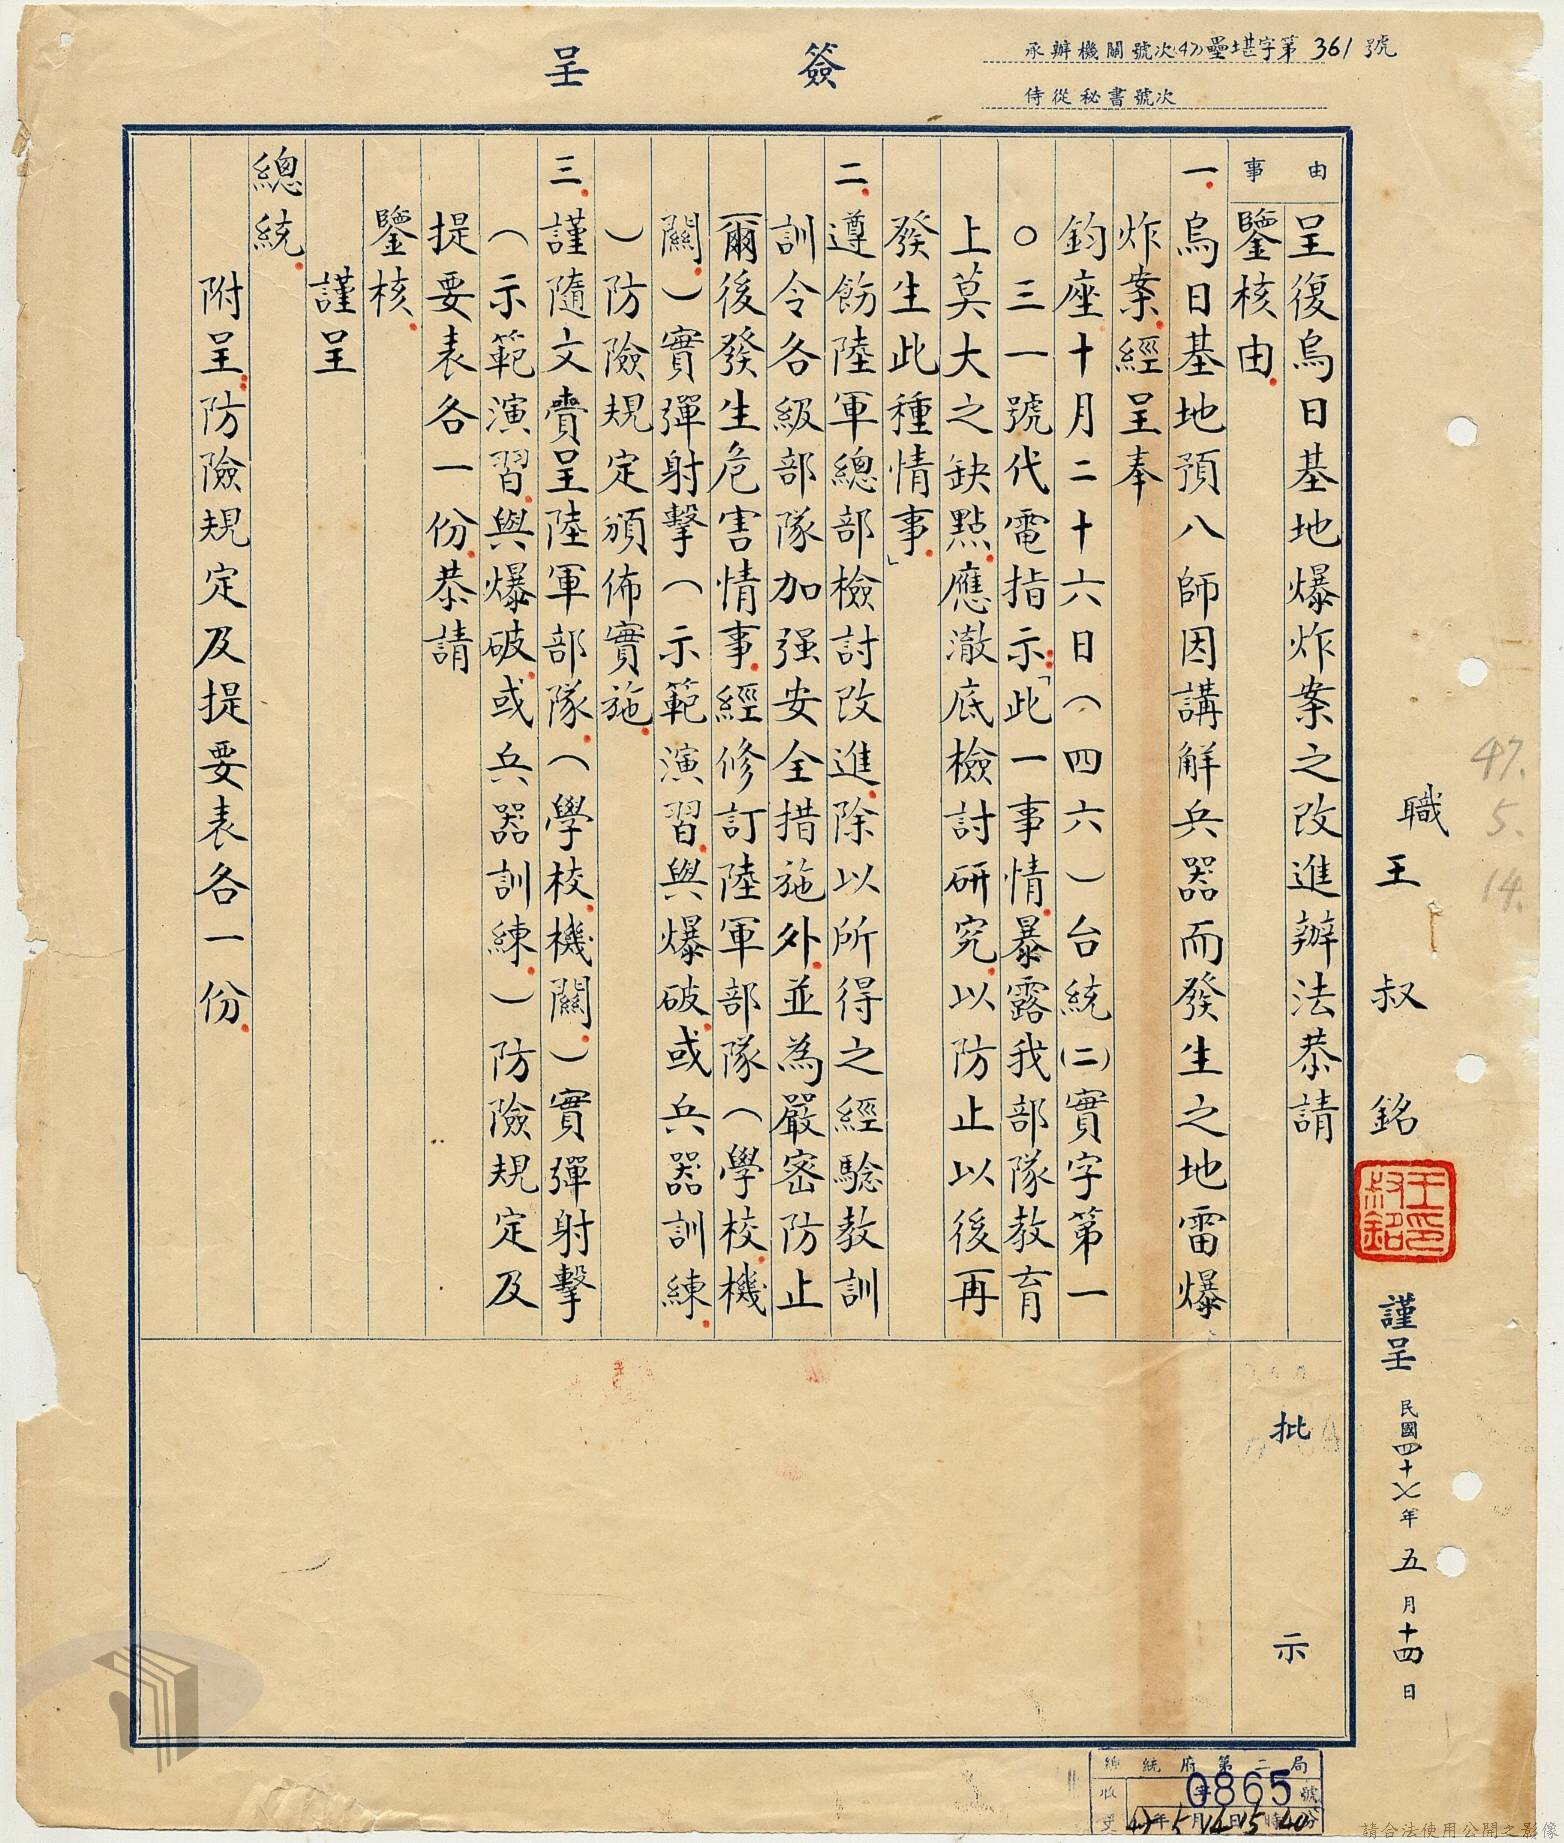 簽呈
承辦機關號次(47)壘堪字第361號
侍從秘書號次
職王叔銘
王叔銘印
謹呈
民國四十七年五月十四日
47.5.14.
事由
呈復烏日基地爆炸案之改進辦法恭請
鑒核由.
一.烏日基地預八師因講解兵器而發生之地雷爆
炸案.經呈奉
鈞座十月二十六日（四六）台統(二)實字第一
○三一號代電指示:「此一事情.暴露我部隊教育
上莫大之缺點.應澈底檢討研究.以防止以後再
發生此種情事.」
二.遵飭陸軍總部檢討改進.除以所得之經驗教訓
訓令各級部隊加强安全措施外.並為嚴密防止
爾後發生危害情事.經修訂陸軍部隊（學校.機
關.）實彈射擊（示範演習.與爆破.或兵器訓練.
）防險規定頒佈實施.
三.謹隨文賷呈陸軍部隊.（學校.機關.）實彈射擊
（示範演習.與爆破.或兵器訓練.）防險規定及
提要表各一份.恭請
鑒核.
謹呈
總統.
附呈:防險規定及提要表各一份.
批示
總統府第二局
收文 字0865號
47年5月14日15時40分
請合法使用公開之影像